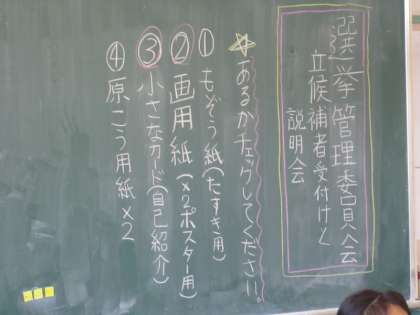 選挙管理委員会
立候補者受付けと
説明会
☆あるかチェックしてください。
①もぞう紙(たすき用)
②画用紙(×2ポスター用)
③小さなカード(自己紹介)
④原こう用紙×2